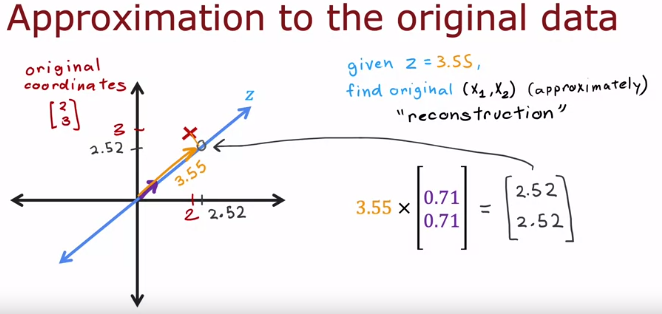 Approximation to the original data
original
coordinates
[2
3]
3
2.52
2
2.52
3.55
z
given z = 3.55,
find original (x₁,x₂) (approximately)
"reconstruction"
3.55 × [0.71
0.71] = [2.52
2.52]